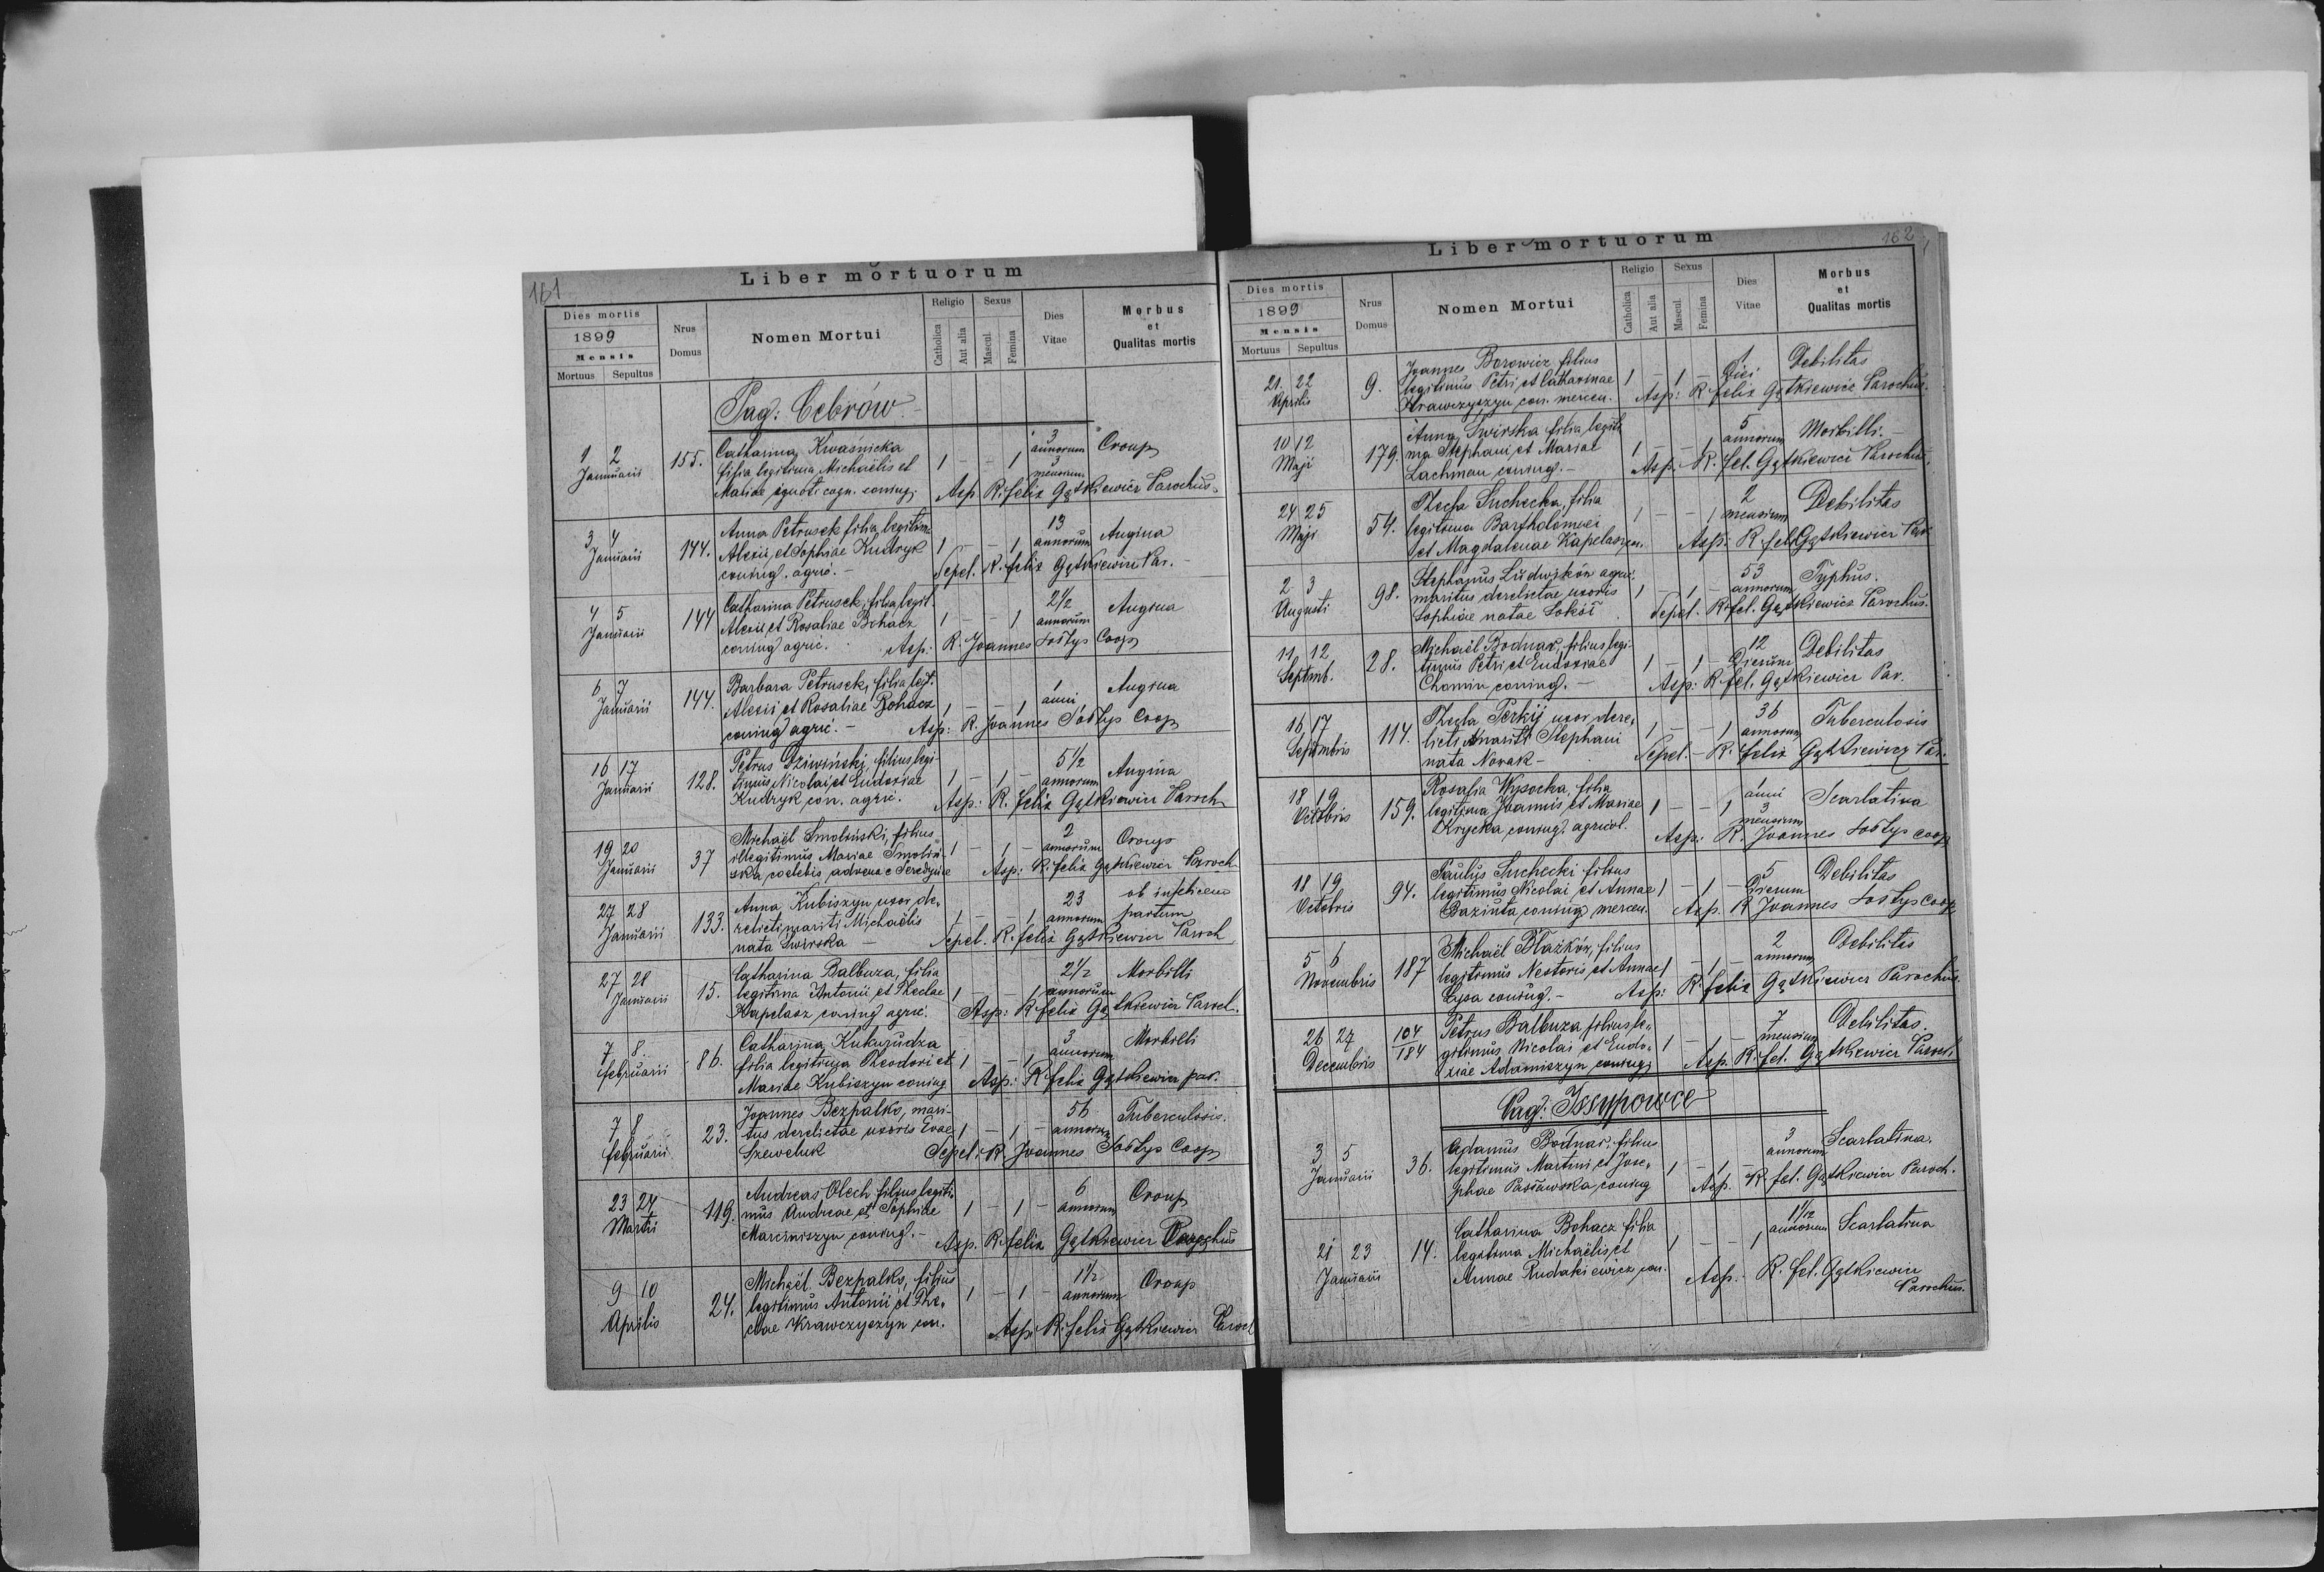 161
Liber mortuorum
Dies mortis
1899
Mensis
Mortuus Sepultus
Nrus Domus
Nomen Mortui
Religio
Catholica
Aut alia
Sexus
Mascul.
Femina
Dies Vitae
Morbus et Qualitas mortis
Pag: Cebrów
1 2 Januarii 155. Catharina Kwaśnicka 3 annorum Croup
filia legitima Michaëlis et 1 - - 1 3 mensium
Mariae ignoti cogn. coniug. Asp. R. Felix Gątkiewicz Parochus
3 4 Januarii 144. Anna Petrusek filia legitima 13 annorum Angina
Alexii et Sophiae Kudryk 1 - - 1
coniug. agric. - Sepel. R. Felix Gątkiewicz Par.
4 5 Januarii 144 Catharina Petrusek, filia legit. 2 1/2 annorum Angina
Alexii et Rosaliae Bohacz 1 - - 1
coniug agric. Asp: R. Joannes Łostys Coop
6 7 Januarii 144. Barbara Petrusek, filia legit. 1 anni Angina
Alexii et Rosaliae Bohacz 1 - - 1
coniug agric. - Asp: R. Joannes Łostys Coop
16 17 Januarii 128. Petrus Dziwiński, filius legi- 5 1/2 annorum Angina
timus Nicolai et Eudoxiae 1 - 1 -
Kudryk con. agric. Asp: R. Felix Gątkiewicz Paroch
19 20 Januarii 37 Michaël Smoliński, filius 2 annorum Croup
illegitimus Mariae Smoliń- 1 - 1 -
ska coelebis advena e Seredynce Asp: R. Felix Gątkiewicz Paroch
27 28 Januarii 133. Anna Kubiszyn uxor de- 23 annorum ob infelicem
relicti mariti Michaëlis 1 - - 1 partum
nata Swirska - Sepel. R. Felix Gątkiewicz Paroch
27 28 Januarii 15. Catharina Balbuza, filia 2 1/2 annorum Morbilli
legitima Antonii et Theclae 1 - - 1
Kapelasz coniug agric. Asp: R Felix Gątkiewicz Paroch.
7 8. Februarii 86. Catharina Kukurudza 3 annorum Morbilli
filia legitima Theodori et 1 - - 1
Mariae Kubiszyn coniug Asp: R Felix Gątkiewicz par.
7 8 Februarii 23. Joannes Bezpalko, mari- 56 annorum Tuberculosis.
tus derelictae uxoris Evae 1 - 1 -
Szeweluk Sepel. R Joannes Łostys Coop
23 24 Martii 119. Andreas Olech filius legiti- 6 annorum Croup
mus Andreae et Sophiae 1 - 1 -
Marciniszyn coniug. - Asp. R Felix Gątkiewicz Parochus
9 10 Aprilis 24. Michaël Bezpalko, filius 1 1/2 annorum Croup
legitimus Antonii et The- 1 - 1 -
clae Krawczyszyn con. Asp. R. Felix Gątkiewicz Paroch
162
Liber mortuorum
Dies mortis
1899
Mensis
Mortuus Sepultus
Nrus Domus
Nomen Mortui
Religio
Catholica
Aut alia
Sexus
Mascul.
Femina
Dies Vitae
Morbus et Qualitas mortis
21. 22 Aprilis 9. Joannes Borowicz filius 1 Diei Debilitas
legitimus Petri et Catharinae 1 - 1 -
Krawczyszyn con. mercen. Asp: R Felix Gątkiewicz Parochus.
10 12 Maji 179. Anna Swirska filia legiti 5 annorum Morbilli. -
ma Stephani et Mariae 1 - - 1
Lachman coniug. - Asp: R. Fel. Gątkiewicz Parochus.
24 25 Maji 54. Thecla Suchecka, filia 2 mensium Debilitas
legitima Bartholomaei 1 - - 1
et Magdalenae Kapelasz con. Asp: R Felix Gątkiewicz Par.
2 3 Augusti 98. Stephanus Ludwików agric. 53 annorum Typhus.
maritus derelictae uxoris 1 - 1 -
Sophiae natae Sokół Sepel. R. Fel. Gątkiewicz Parochus.
11. 12 Septemb. 28. Michaël Bodnar, filius legi- 12 Dierum Debilitas
timus Petri et Eudoxiae 1 - 1 -
Chomin coniug. - Asp: R Fel. Gątkiewicz Par.
16 17 Septembris 114. Thecla Perkij uxor dere- 36 annorum Tuberculosis
licti mariti Stephani 1 - - 1
nata Nowak - Sepel. - R. Felix Gątkiewicz Par.
18 19 Octobris 159. Rosalia Wysocka, filia 1 anni Scarlatina
legitima Joannis et Mariae 1 - - 1 3 mensium
Krycka coniug. agricol. Asp: R. Joannes Łostys coop
18 19 Octobris 94. Paulus Suchecki filius 5 Dierum Debilitas
legitimus Nicolai et Annae 1 - 1 -
Baziuta coniug mercen. Asp. R Joannes Łostys coop
5 6 Novembris 187 Michaël Błażków, filius 2 annorum Debilitas
legitimus Nestoris et Annae 1 - 1 -
Łysa coniug. - Asp: R Felix Gątkiewicz Parochus.
26 27 Decembris 104/184 Petrus Balbuza filius le- 7 mensium Debilitas.
gitimus Nicolai et Eudo- 1 - 1 -
xiae Adamiszyn coniug. Asp. R. Fel. Gątkiewicz Paroch
Pag: Issypowce
3 5 Januarii 36. Adamus Bodnar, filius 3 annorum Scarlatina.
legitimus Martini et Jose- 1 - 1 -
phae Pasławska coniug Asp. R. Fel. Gątkiewicz Paroch.
21 23 Januarii 14. Catharina Bohacz filia 1 1/12 annorum Scarlatina
legitima Michaëlis et 1 - - 1
Annae Rudakiewicz con. Asp: R. Fel. Gątkiewicz
Parochus.